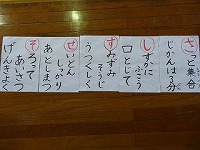 さっと集合
じかんは3分
しずかに
ふこう
口とじて
すみずみ
そうじ
うつくしく
せいとん
しっかり
あとしまつ
そろって
あいさつ
げんきよく